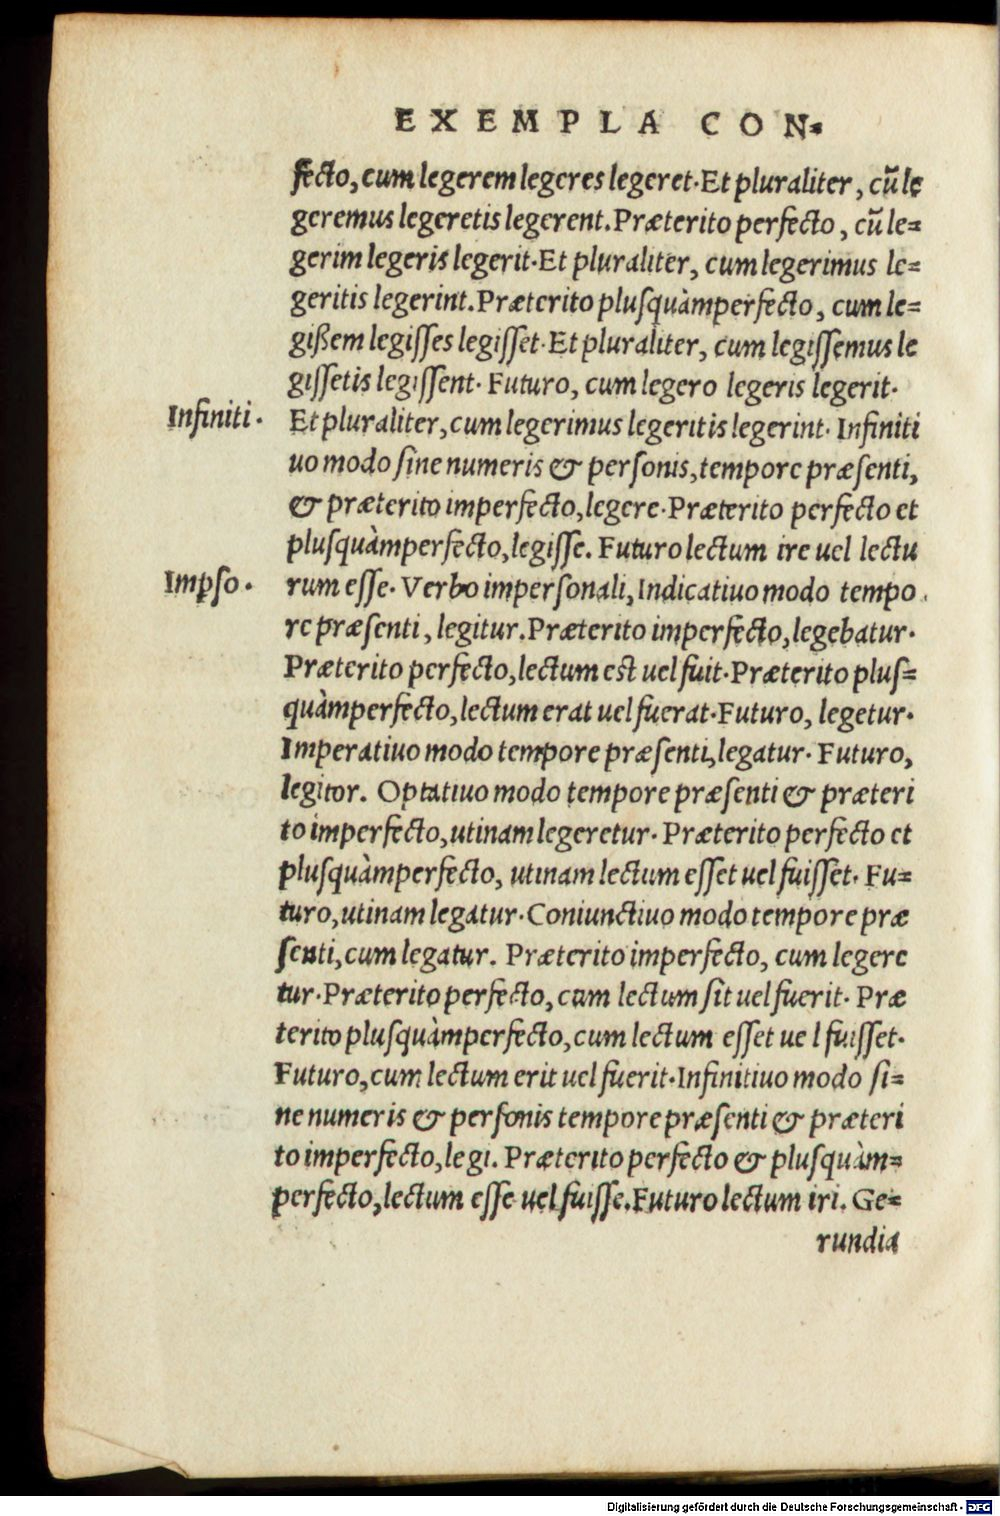 EXEMPLA CON-
fecto, cum legerem legeres legeret. Et pluraliter, cũ le
geremus legeretis legerent. Præterito perfecto, cũ le=
gerim legeris legerit. Et pluraliter, cum legerimus le=
geritis legerint. Præterito plusquàmperfecto, cum le=
gißem legiſſes legiſſet. Et pluraliter, cum legiſſemus le
giſſetis legiſſent. Futuro, cum legero legeris legerit.
Infiniti. Et pluraliter, cum legerimus legeritis legerint. Infiniti
uo modo ſine numeris & perſonis, tempore præſenti,
& præterito imperfecto, legere. Præterito perfecto et
pluſquàmperfecto, legiſſe. Futuro lectum ire uel lectu
Imꝑſo. rum eſſe. Verbo imperſonali, Indicatiuo modo tempo
re præſenti, legitur. Præterito imperfecto, legebatur.
Præterito perfecto, lectum est uel fuit. Præterito pluſ=
quàmperfecto, lectum erat uel fuerat. Futuro, legetur.
Imperatiuo modo tempore præſenti, legatur. Futuro,
legitor. Optatiuo modo tempore præſenti & præteri
to imperfecto, utinam legeretur. Præterito perfecto et
pluſquàmperfecto, utinam lectum eſſet uel fuiſſet. Fu=
turo, utinam legatur. Coniunctiuo modo tempore præ
ſenti, cum legatur. Præterito imperfecto, cum legere
tur. Præterito perfecto, cum lectum ſit uel fuerit. Præ
terito pluſquàmperfecto, cum lectum eſſet ue l fuiſſet.
Futuro, cum lectum erit uel fuerit. Infinitiuo modo ſi=
ne numeris & perſonis tempore præſenti & præteri
to imperfecto, legi. Præterito perfecto & pluſquàm=
perfecto, lectum eſſe uel fuiſſe. Futuro lectum iri. Ge=
rundia
Digitalisierung gefördert durch die Deutsche Forschungsgemeinschaft - DFG